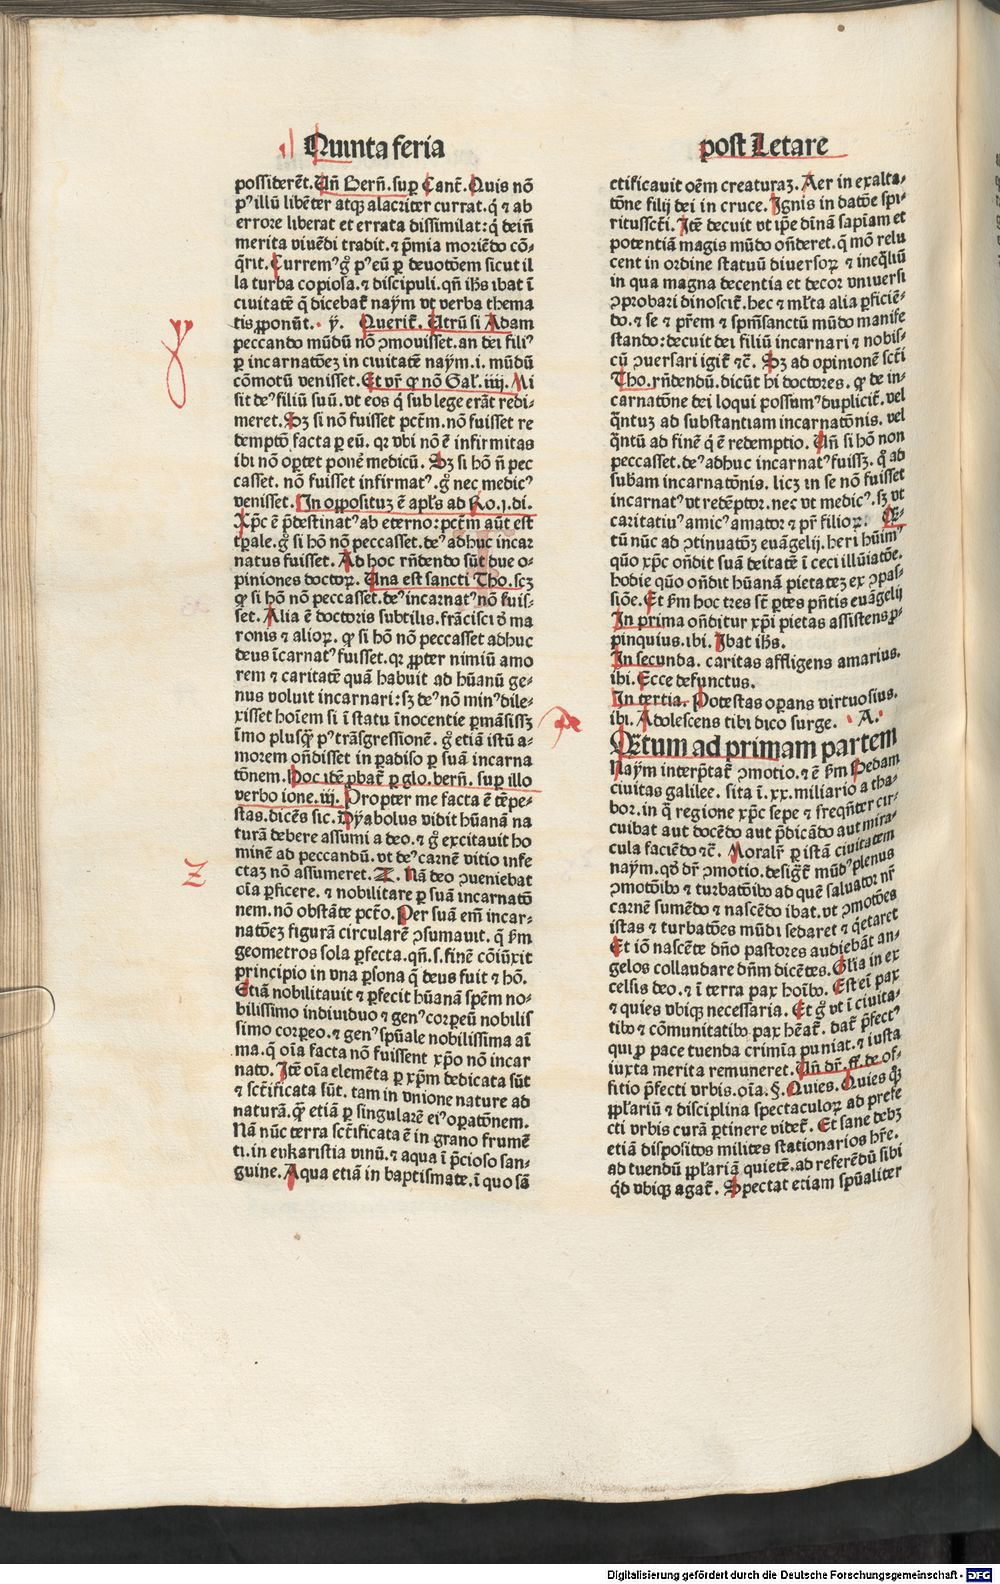 Quinta feria
possiderēt. Uñ Berñ. sup Cant̄. Quis nō
pꝰ illū libēter atqꝫ alacriter currat. q̇ ⁊ ab
errore liberat et errata dissimilat: q̇ deiñ
merita viuēdi tradit. ⁊ p̄mia moriēdo cō-
q̄rit. Curremꝰ gͦ pꝰ eū ꝑ deuotōem sicut il
la turba copiosa. ⁊ discipuli. qñ ihs̄ ibat ī
ciuitatē q̄ dicebat̄ naym̄ vt verba thema
tis ꝓponūt. · ẏ. Querit̄. Utrū si Adam
peccando mūdū nō ꝯmouisset. an dei filiꝰ
ꝑ incarnatōeꝫ in ciuitatē naym̄ .i. mūdū
cōmotū venisset. Et vr̄ ꝙ nō Gal̄. iiij. Mi
sit deꝰ filiū suū. vt eos q̇ sub lege erāt redi-
meret. Sꝫ si nō fuisset pctm̄. nō fuisset re
demptō facta ꝑ eū. qꝛ vbi nō ē infirmitas
ibi nō oꝑtet ponē medicū. Sꝫ si hō ñ pec
casset. nō fuisset infirmatꝰ. gͦ nec medicꝰ
venisset. In opposituꝫ ē apl̄s ad Ro. j. di.
Xp̄c ē p̄destinatꝰ ab eterno: pctm̄ aūt est
tꝑale. gͦ si hō nō peccasset. deꝰ adhuc incar
natus fuisset. Ad hoc rñdendo sūt due o-
piniones doctoꝝ. Una est sancti Tho. scꝫ
ꝙ si hō nō peccasset. deꝰ incarnatꝰ nō fuis-
set. Alia ē doctoris subtilis. frācisci ð ma
ronis ⁊ alioꝝ. ꝙ si hō nō peccasset adhuc
deus īcarnatꝰ fuisset. qꝛ ꝓpter nimiū amo
rem ⁊ caritatē quā habuit ad hūanū ge-
nus voluit incarnari: sꝫ deꝰ nō minꝰ dile-
xisset hoīem si ī statu īnocentie ꝑmāsissꝫ
īmo plusq̄ꝫ pꝰ trāsgressionē. gͦ etiā istū a-
morem oñdisset in paradiso ꝑ suā incarna
tōnem. Hoc idē ꝓbat̄ ꝑ glo. berñ. suꝑ illo
verbo ione. iij. Propter me facta ē tēpe-
stas. dicēs sic. Dẏabolus vidit hūanā na
turā debere assumi a deo. ⁊ gͦ excitauit ho
minē ad peccandū. vt deꝰ carnē vitio infe
ctaꝫ nō assumeret. Z. Nā deo ꝯueniebat
oīa ꝑficere. ⁊ nobilitare ꝑ suā incarnatō
nem. nō obstāte pctō. Per suā em̄ incar-
natōeꝫ figurā circularē ꝯsumauit. q̄ ẜm
geometros sola ꝑfecta. qñ .s. finē cōiūxit
principio in vna ꝑsona q̄ deus fuit ⁊ hō.
Etiā nobilitauit ⁊ ꝑfecit hūanā spēm no-
bilissimo indiuiduo ⁊ genꝰ corpeū nobilis
simo corpeo. ⁊ genꝰ spūale nobilissima aī
ma. q̄ oīa facta nō fuissent xp̄o nō incar
nato. Itē oīa elemēta ꝑ xp̄m dedicata sūt
⁊ sctīficata sūt. tam in vnione nature ad
naturā. q̄ꝫ etiā ꝑ singularē eiꝰ oꝑatōnem.
Nā nūc terra sctīficata ē in grano frumē
ti. in eukaristia vinū. ⁊ aqua ī p̄cioso san-
guine. Aqua etiā in baptismate. ī quo sā
post Letare
ctificauit oēm creaturaꝫ. Aer in exalta-
tōne filij dei in cruce. Ignis in datōe spi-
ritusscti. Itē decuit vt ip̄e dīnā sapīam et
potentiā magis mūdo oñderet. q̄ mō relu
cent in ordine statuū diuersoꝝ ⁊ ineq̄liū
in qua magna decentia et decor vniuersi
ꝯprobari dinoscit̄. hec ⁊ ml̄ta alia ꝑficiē-
do. ⁊ se ⁊ pr̄em ⁊ spm̄sanctū mūdo manife
stando: decuit dei filiū incarnari ⁊ nobis-
cū ꝯuersari igit̄ ⁊c̄. Sꝫ ad opinionē scti
Tho. rñdendū. dicūt hi doctores. ꝙ de in-
carnatōne dei loqui possumꝰ duplicit̄. vel
q̄ntuꝫ ad substantiam incarnatōnis. vel
q̄ntū ad finē q̇ ē redemptio. Uñ si hō non
peccasset. deꝰ adhuc incarnatꝰ fuissꝫ. q̄ ad
subam incarnatōnis. licꝫ in se nō fuisset
incarnatꝰ vt redēptor. nec vt medicꝰ. sꝫ vt
caritatiuꝰ amicꝰ amator ⁊ pr̄ filioꝝ. Qͣ-
tū nūc ad ꝯtinuatōꝫ euāgelij. heri hūimꝰ
quō xp̄c oñdit suā deitatē ī ceci illūiatōe.
hodie quō oñdit hūanā pietateꝫ ex ꝯpas-
siōe. Et ẜm hoc tres st̄ ꝑtes pñtis euāgelij
In prima oñditur xp̄i pietas assistens ꝓ-
pinquius. ibi. Ibat ihs̄.
In secunda. caritas affligens amarius.
ibi. Ecce defunctus.
In tertia. Potestas oꝑans virtuosius.
ibi. Adolescens tibi dico surge. · A. ·
Qͣtum ad primam partem
Naym̄ interp̄tat̄ ꝯmotio. ⁊ ē ẜm Bedam
ciuitas galilee. sita ī .xx. miliario a tha-
bor. in q̄ regione xp̄c sepe ⁊ freqñter cir-
cuibat aut docēdo aut p̄dicādo aut mira-
cula faciēdo ⁊c̄. Moralr̄ ꝑ istā ciuitatem
naym̄. qͦð dr̄ ꝯmotio. desigt̄ mūdꝰ plenus
ꝯmotōibꝰ ⁊ turbatōibꝰ ad quē saluator nr̄
carnē sumēdo ⁊ nascēdo ibat. vt ꝯmotōes
istas ⁊ turbatōes mūdi sedaret ⁊ q̇etaret
Et iō nascēte dño pastores audiebāt an-
gelos collaudare dñm dicētes. Gl̄ia in ex
celsis deo. ⁊ ī terra pax hoībꝰ. Est eī pax
⁊ quies vbiqꝫ necessaria. Et gͦ vt ī ciuita-
tibꝰ ⁊ cōmunitatibꝰ pax hēat̄. dat̄ p̄fectꝰ
qui ꝓ pace tuenda crimīa puniat. ⁊ iusta
iuxta merita remuneret. Uñ dr̄. ff. de of-
fitio p̄fecti vrbis. oīa. §. Quies. Quies q̄ꝫ
ꝓplariū ⁊ disciplina spectaculoꝝ ad prefe
cti vrbis curā ꝑtinere videt̄. Et sane debꝫ
etiā dispositos milites stationarios hr̄e.
ad tuendū ꝓplariā quietē. ad referēdū sibi
qͥd vbiqꝫ agat̄. Spectat etiam spūaliter
y
z
A
Digitalisierung gefördert durch die Deutsche Forschungsgemeinschaft - DFG